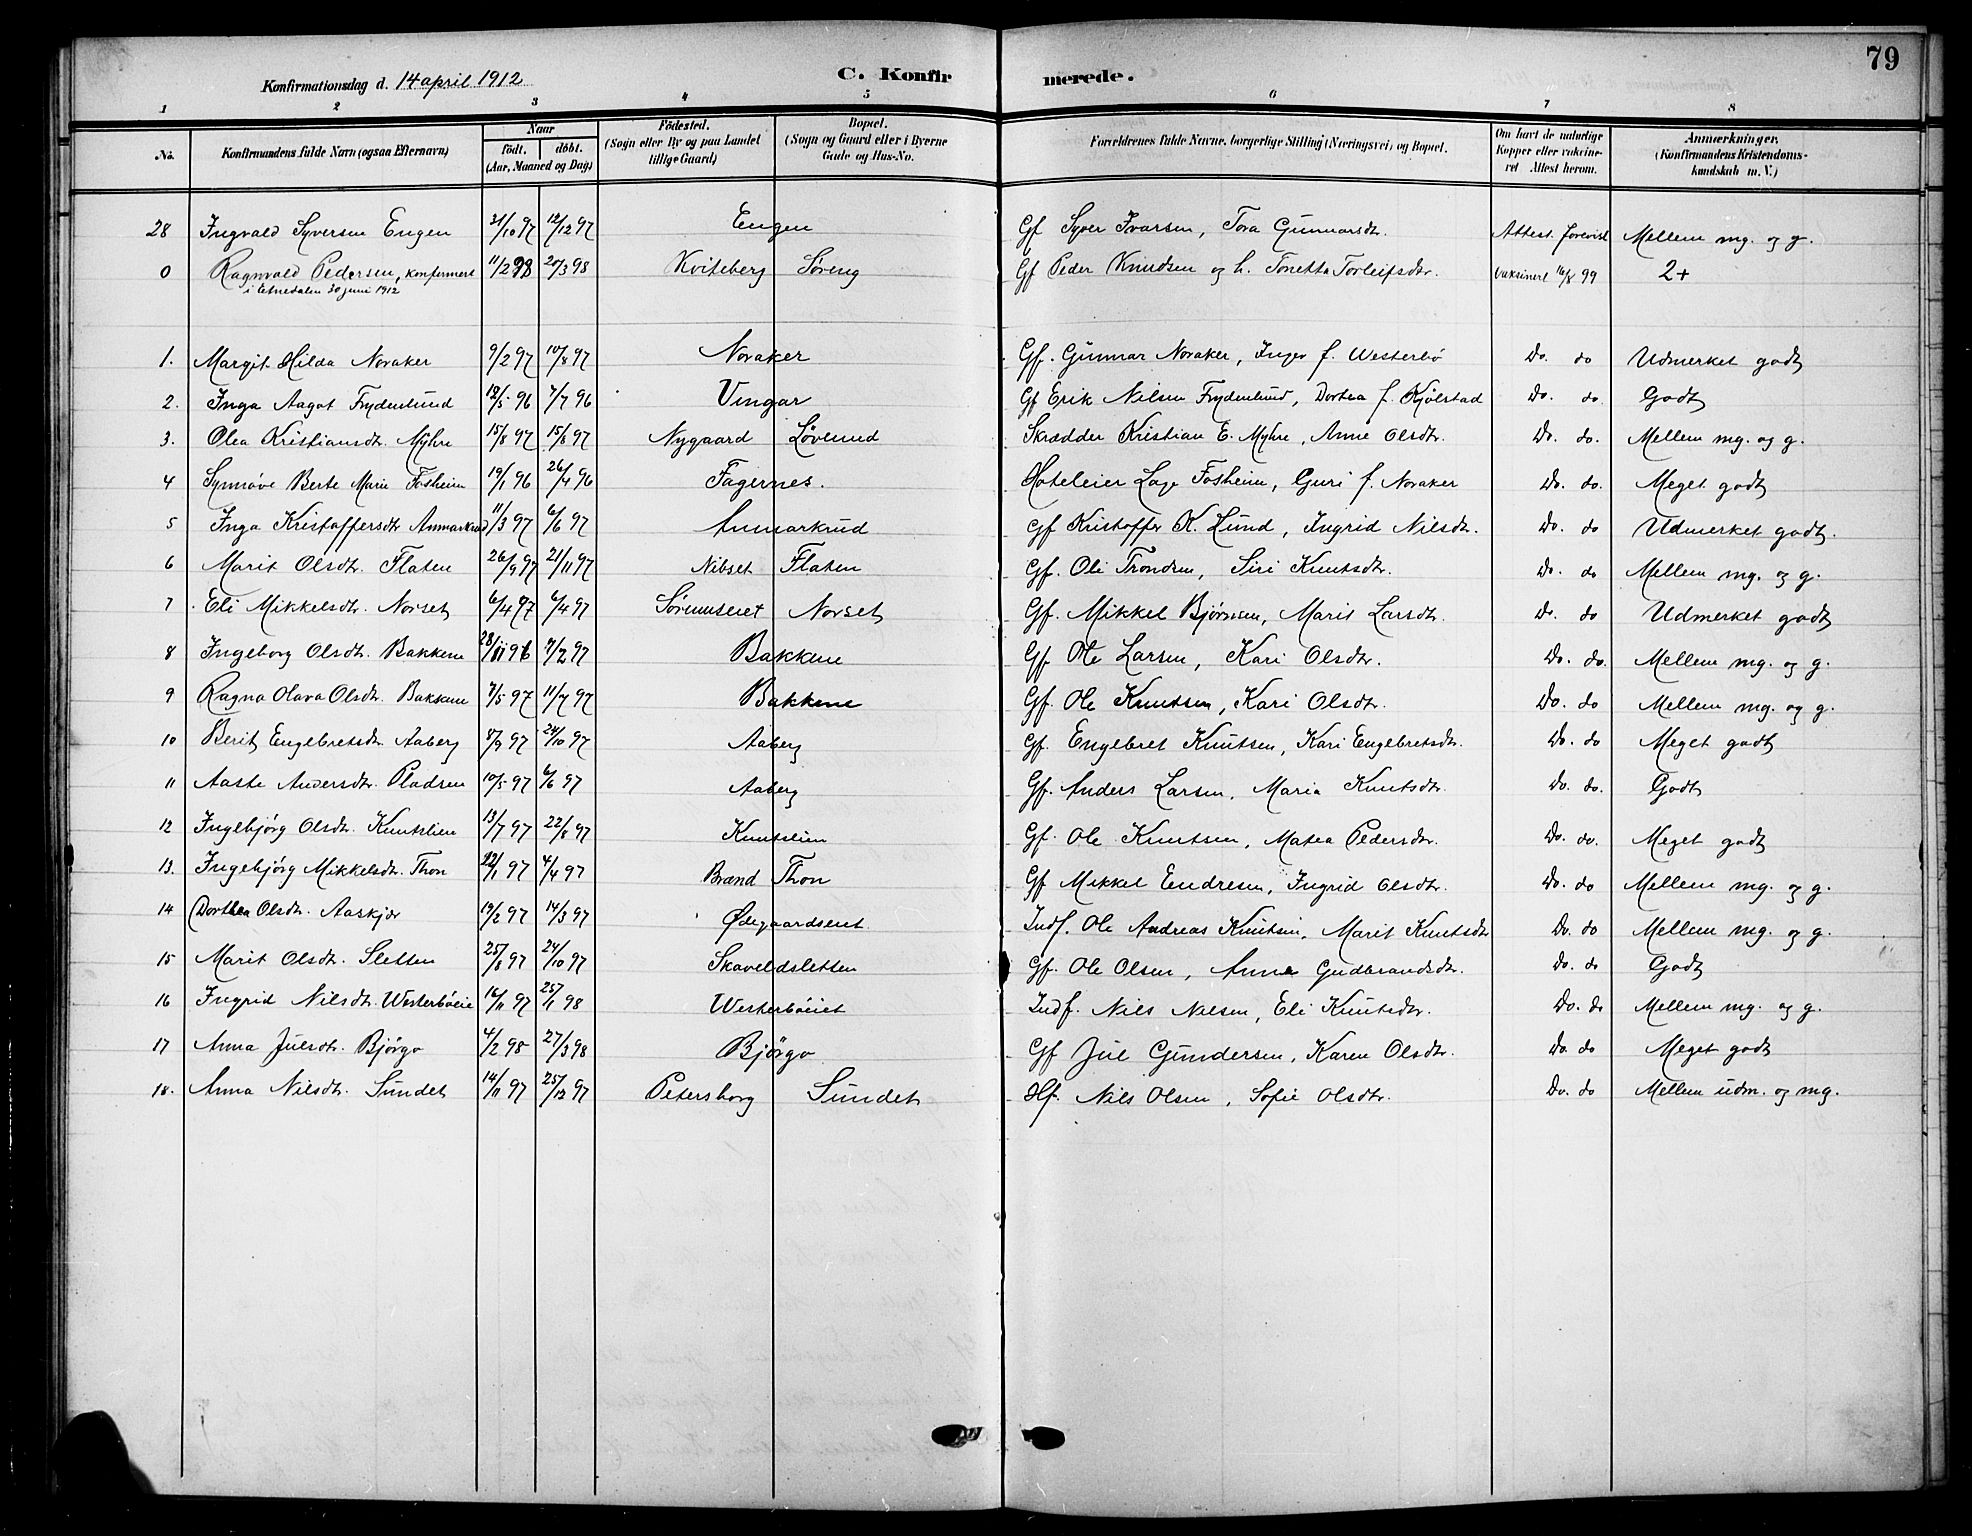 79
Konfirmationsdag d. 14 april 1912
C. Konfirmerede.
1 2 3 4 5 6 7 8
No. Konfirmandens fulde Navn (ogsaa Efternavn) Naar født. døbt. (Aar, Maaned og Dag) Fødested. (Sogn eller By og paa Landet tillige Gaard) Bopæl. (Sogn og Gaard eller i Byerne Gade og Hus-No. Forældrenes fulde Navne, borgerlige Stilling (Næringsvei) og Bopæl. Om havt de naturlige Kopper eller vakcineret Attest herom. Anmærkninger. (Konfirmandens Kristendomskundskab m. V.)
28 Ingvald Syversen Engen 31/10 97 12/12 97 Engen Gf Syver Ivarsen, Tora Gunnarsdtr. Attest forevist Mellem mg. og g.
0 Ragnvald Pedersen, konfirmert 11/2 98 20/3 98 Kviteberg Søreng Gf Peder Knudsen og h. Tonetta Torleifsdtr. vaksinert 16/8 99 2+
i Etnedalen 30 juni 1912
1. Margit Hilda Noraker 9/2 97 10/8 97 Noraker Gf. Gunnar Noraker, Inger f. Westerbø Do. do Udmerket godt
2. Inga Aagot Frydenlund 12/5 96 7/7 96 Vingar Gf Erik Nilsen Frydenlund, Dortea f. Kjølstad Do. do. Godt
3. Olea Kristiansdtr. Myhre 15/8 97 15/8 97 Nygaard Løvlund Skrædder Kristian E. Myhre, Anne Olsdtr. Do. do. Mellem mg. og g.
4 Synnøve Berte Marie Fosheim 19/1 96 26/4 96 Fagernes. Hoteleier Lage Fosheim, Guri f. Noraker Do. do. Meget godt
5 Inga Kristoffersdtr Anmarkrud 11/3 97 6/6 97 Anmarkrud Gf Kristoffer K. Lund, Ingrid Nilsdtr. Do. do Udmerket godt.
6 Marit Olsdtr. Flaten 26/9 97 21/11 97 Nibset Flaten Gf. Oli Trondsen, Siri Knutsdtr. Do. do Mellem mg. og g.
7 Eli Mikkelsdtr. Norset 6/4 97 6/4 97 Norset Gf. Mikkel Bjørnsen, Marit Larsdtr. Do. do Udmerket godt
8 Ingeborg Olsdtr. Bakkene 28/11 96 7/2 97 Bakkene Gf. Ole Larsen, Kari Olsdtr. Do. do. Mellem mg. og g.
9 Ragna Olava Olsdtr. Bakkene 7/5 97 11/7 97 Bakkene Gf. Ole Knutsen, Kari Olsdtr. Do. do Mellem mg. og g.
10 Berit Engebretsdtr Aaberg 8/9 97 24/10 97 Aaberg Gf. Engebret Knutsen, Kari Engebretsdtr. Do. do Meget godt
11 Aaste Andersdtr. Pladsen 10/5 97 6/6 97 Aaberg Gf. Anders Larsen, Maria Knutsdtr. Do. do. Godt
12 Ingebjørg Olsdtr. Knutslien 13/7 97 22/8 97 Knutslien Gf. Ole Knutsen, Matea Pedersdtr. Do. do. Meget godt
13. Ingebjørg Mikkelsdtr. Thon 22/1 97 4/4 97 Brænd Thon Gf Mikkel Endresen, Ingrid Olsdtr. Do. do Mellem mg. og g.
14 Dorthea Olsdtr. Aaskjær 19/2 97 14/3 97 Ødegaardseiet Indf. Ole Andreas Knutsen, Marit Knutsdtr Do. do Mellem mg. og g.
15 Marit Olsdtr. Sletten 25/8 97 24/10 97 Skaveldsletten Gf. Ole Olsen, Anne Gudbrandsdtr. Do. do Godt
16 Ingrid Nilsdtr. Westerbøeie 16/11 97 25/1 98 Westerbøeiet Indf. Nils Nilsen, Eli Knutsdtr. Do. do Mellem mg. og g.
17 Anna Julsdtr. Bjørgo 4/2 98 27/3 98 Bjørgo Gf Jul Gundersen, Karen Olsdtr. Do. do Meget godt
18. Anna Nilsdtr. Sundet 14/11 97 25/12 97 Petersborg Sundet Hf. Nils Olsen, Sofie Olsdtr. Do. do Mellem udm. og mg.